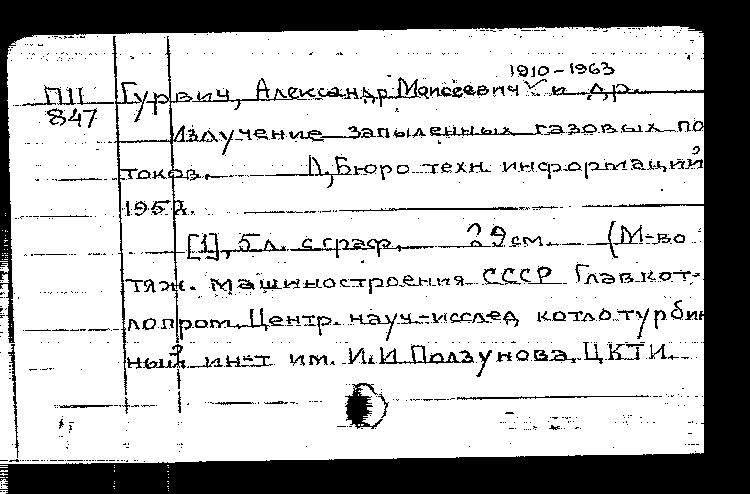 1910-1963
ПII Гурвич, Александр Моисеевич и др.
847
Излучение запыленных газовых по
токов. Л, Бюро техн. информаций
1952.
[1], 5 л. с граф. 29 см. (М-во
тяж. машиностроения СССР Главкот-
лопром. Центр. науч-исслед котлотурбин
ный ин-т им. И.И Ползунова. ЦКТИ.